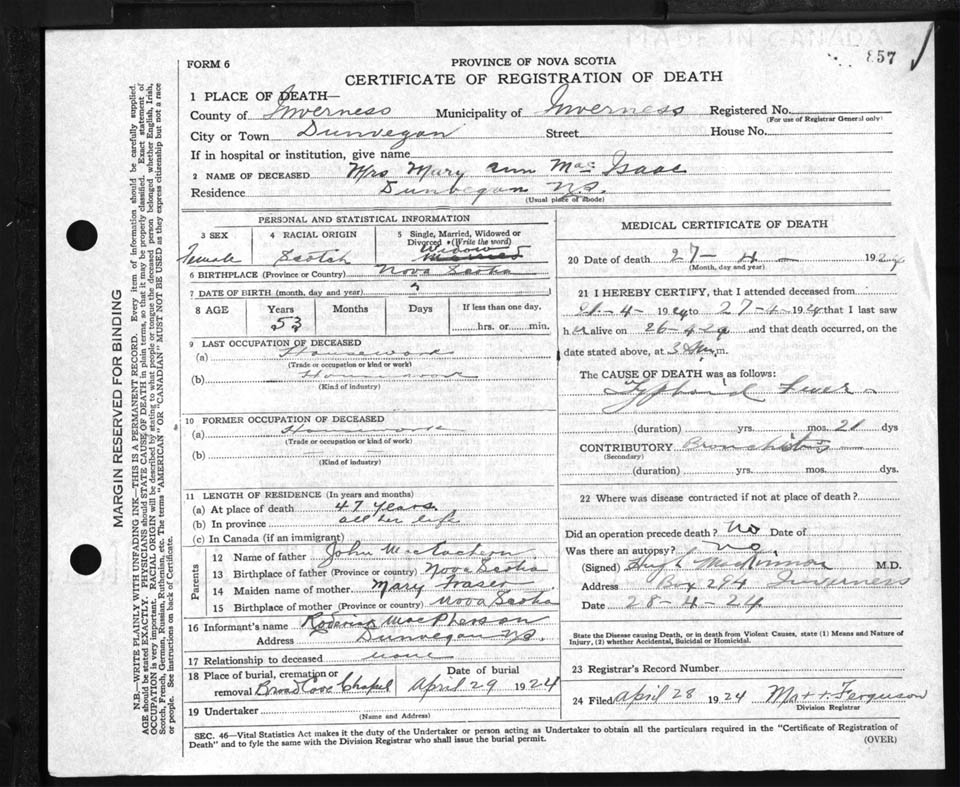 MADE IN CANADA
857
FORM 6
PROVINCE OF NOVA SCOTIA
CERTIFICATE OF REGISTRATION OF DEATH
1 PLACE OF DEATH—
County of Inverness Municipality of Inverness Registered No.
(For use of Registrar General only)
City or Town Dunvegan Street House No.
If in hospital or institution, give name
2 NAME OF DECEASED Mrs Mary Ann MacIsaac
Residence Dunvegan N.S.
(Usual place of abode)
PERSONAL AND STATISTICAL INFORMATION
3 SEX
Female
4 RACIAL ORIGIN
Scotch
5 Single, Married, Widowed or
Divorced (Write the word)
Widow
Married
6 BIRTHPLACE (Province or Country) Nova Scotia
7 DATE OF BIRTH (month, day and year) ?
8 AGE Years Months Days If less than one day,
53 hrs. or min.
9 LAST OCCUPATION OF DECEASED
(a) Housework
(Trade or occupation or kind of work)
(b) Housework
(Kind of industry)
10 FORMER OCCUPATION OF DECEASED
(a) Housework
(Trade or occupation or kind of work)
(b)
(Kind of industry)
11 LENGTH OF RESIDENCE (In years and months)
(a) At place of death 47 years
(b) In province all her life
(c) In Canada (if an immigrant)
Parents
12 Name of father John MacEachern
13 Birthplace of father (Province or country) Nova Scotia
14 Maiden name of mother Mary Fraser
15 Birthplace of mother (Province or country) Nova Scotia
16 Informant's name Roderick MacPherson
Address Dunvegan N.S.
17 Relationship to deceased none
18 Place of burial, cremation or
removal Broad Cove Chapel
Date of burial
April 29 1924
19 Undertaker
(Name and Address)
MEDICAL CERTIFICATE OF DEATH
20 Date of death 27 - 4 - 1924
(Month, day and year)
21 I HEREBY CERTIFY, that I attended deceased from
-4- 1924 to 27-4-1924 that I last saw
her alive on 26-4-24 and that death occurred, on the
date stated above, at 3 m.
The CAUSE OF DEATH was as follows:
Typhoid Fever
(duration) yrs. mos. 21 dys
CONTRIBUTORY Bronchitis
(Secondary)
(duration) yrs. mos. dys.
22 Where was disease contracted if not at place of death?
Did an operation precede death? No Date of
Was there an autopsy? No.
(Signed) Hugh MacKinnon M.D.
Address Box 294 Inverness
Date 28-4-24
State the Disease causing Death, or in death from Violent Causes, state (1) Means and Nature of
Injury, (2) whether Accidental, Suicidal or Homicidal.
23 Registrar's Record Number
24 Filed April 28 1924 Ferguson
Division Registrar
SEC. 46—Vital Statistics Act makes it the duty of the Undertaker or person acting as Undertaker to obtain all the particulars required in the "Certificate of Registration of
Death" and to fyle the same with the Division Registrar who shall issue the burial permit.
(OVER)
MARGIN RESERVED FOR BINDING
N.B.—WRITE PLAINLY WITH UNFADING INK—THIS IS A PERMANENT RECORD. Every item of information should be carefully supplied.
AGE should be stated EXACTLY. PHYSICIANS should STATE CAUSE OF DEATH in plain terms, so that it may be properly classified. Exact statement of
OCCUPATION is very important. RACIAL ORIGIN will be described by stating to what people or tongue the deceased person belonged whether English, Irish,
Scotch, French, German, Russian, Ruthenian, etc. The terms "AMERICAN" OR "CANADIAN" MUST NOT BE USED as they express citizenship but not a race
or people. See instructions on back of Certificate.